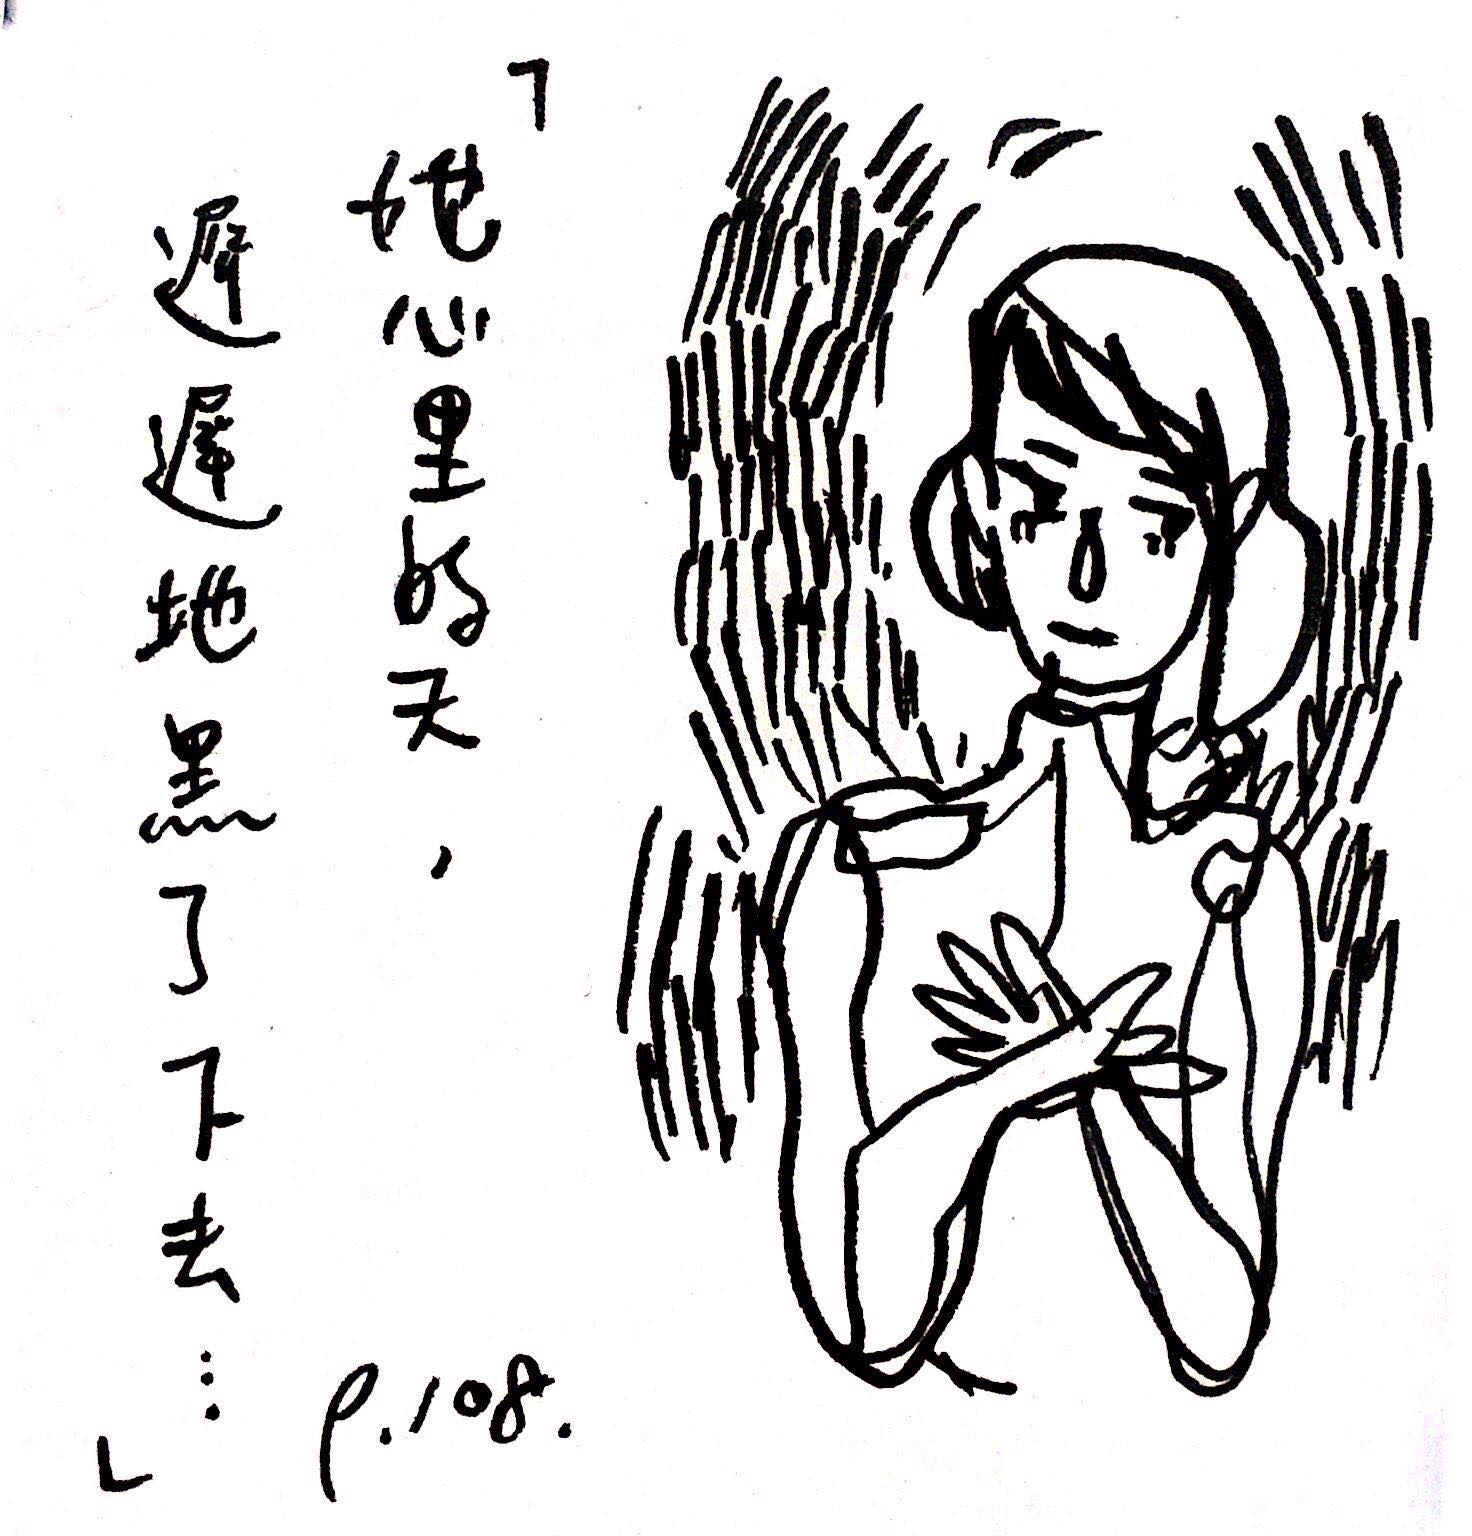 「她心里的天，
遲遲地黑了下去…」
p.108.